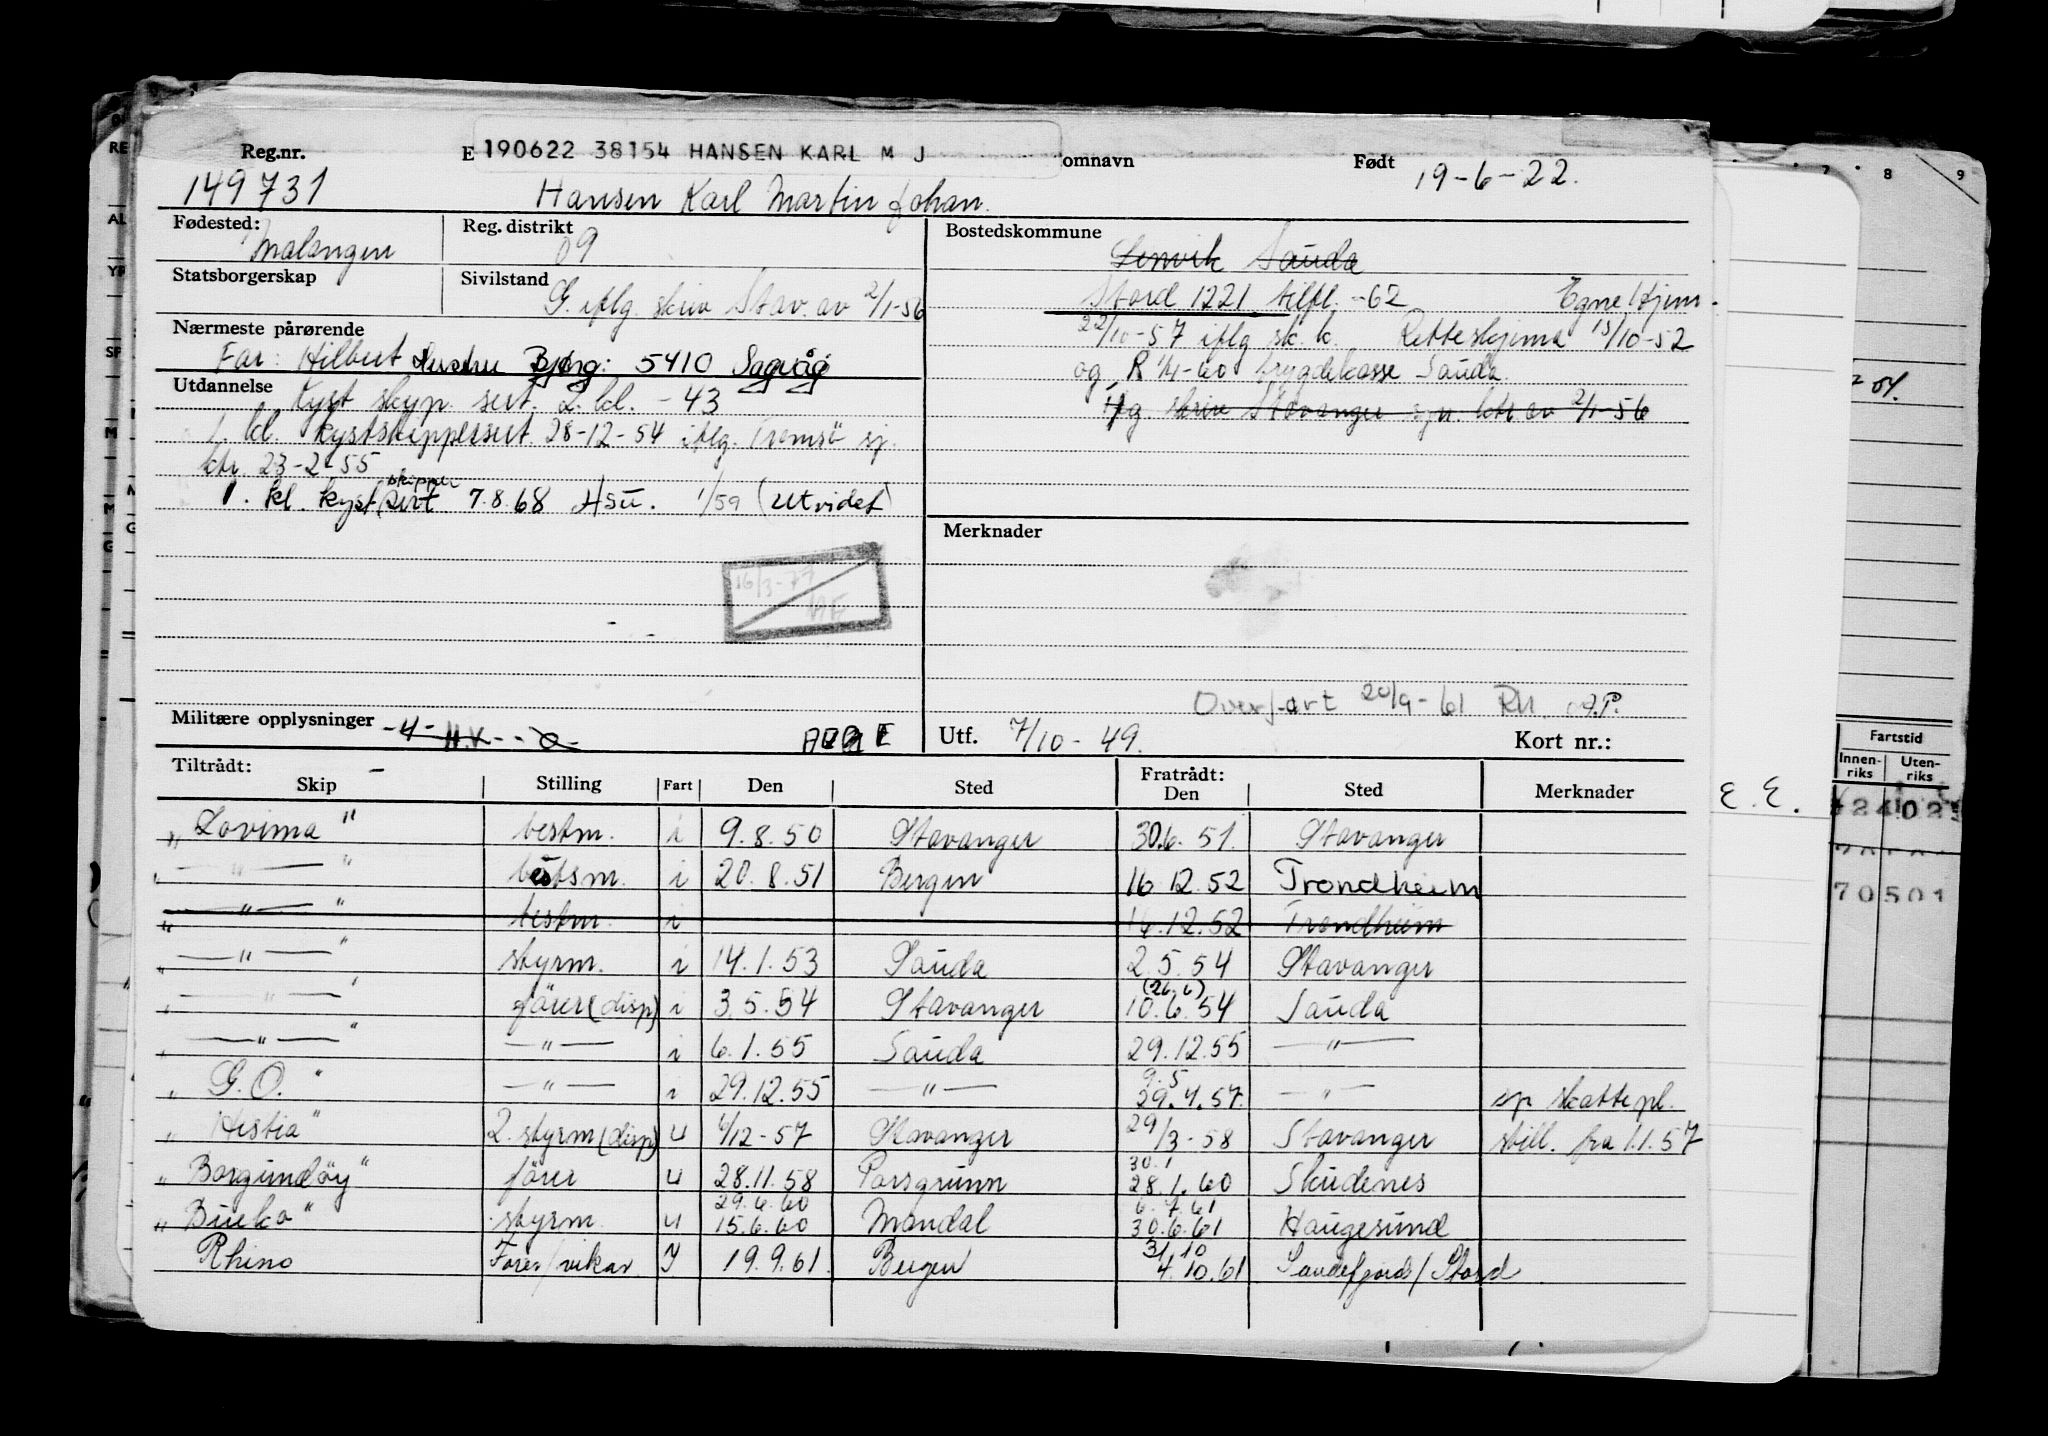 Reg.nr. E 190622 38154 HANSEN KARL M J omnavn Født 19-6-22.
149731 Hansen Karl Martin Johan.
Fødested: Malangen Reg. distrikt 09
Statsborgerskap Sivilstand G. iflg. skriv Stav. av 2/1-56
Nærmeste pårørende
Far: Hilbert Hustru Bjørg: 5410 Sagvåg
Utdannelse Kyst skyp. sert. 2. kl. - 43
1. kl. kystskippersert 28-12-54 iflg. Tromsö sj.
ktr. 23-2-55
1. kl. kyst skipper sert 7.8.68 Hsu. 1/59 (utvidet)
16/3-77
Militære opplysninger -4- H.V.
Bostedskommune
Lenvik Sauda
Stord 1221 tilfl. -62 Egne Hjem.
22/10-57 iflg sk. k. Retteskjema 15/10-52
og R 1/4-60 trygdekasse Sauda
Iflg. skriv Stavanger sjm. ktr av 2/1-56
Merknader
Overfart 20/9-61 RH
Utf. 7/10-49. Kort nr.:
Tiltrådt: Fratrådt:
Skip Stilling Fart Den Sted Den Sted Merknader
„ Lovima " bestm. i 9.8.50 Stavanger 30.6.51. Stavanger
„ — " — " båtsm. i 20.8.51 Bergen 16.12.52 Trondheim
„ — " — " bestm. i 16.12.52 Trondheim
„ — " — " styrm. i 14.1.53 Sauda 2.5.54 Stavanger
„ — " — " förer (disp) i 3.5.54 Stavanger (26.6) 10.6.54 Sauda
„ — " — " — " — i 6.1.55 Sauda 29.12.55 — " —
„ G.O. " — " — i 29.12.55 — " — 9.5 29.4.57. — " — sp skattepl.
„ Hestia " 2. styrm (disp) u 4/12-57 Stavanger 29/3-58 Stavanger still. fra 1.1.57
„ Borgundöy " förer u 28.11.58 Porsgrunn 30.1 28.1.60 Skudenes
„ Bueko " styrm. u 29.6.60 15.6.60 Mandal 6.7.61 30.6.61 Haugesund
Rhino Fører/vikar I 19.9.61 Bergen 31.10 4.10.61 Sandefjord/Stord
7 8 9
Fartstid
Innenriks Utenriks
E. E.
70501